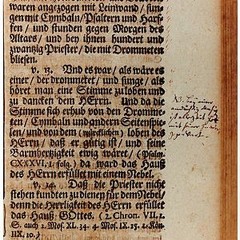 waren angezogen mit Leinwand / sun-
gen mit Cymbaln / Psaltern und Harf-
fen / und stunden gegen Morgen des
Altars / und bey ihnen hundert und
zwantzig Priester / die mit Drommeten
bliesen.
v. 13. Und es war / als wäre es
einer / der drommetet / und sünge / als
höret man eine Stimme zu loben und
zu dancken dem HErrn. Und da die
Stimme sich erhub von den Drom-
meten / Cymbaln und andern Seitenspie-
len / und von dem (würcklichen) loben des
HErrn / daß er gütig ist / und seine
Barmhertzigkeit ewig wäret / (Psalm.
CXXXVI. 1. folg.) da ward das Hauß
des HErrn erfüllet mit einem Nebel.
v. 14. Daß die Priester nicht
stehen kundten zu dienen für dem Nebel /
denn die Herrligkeit des HErrn erfüllet
das Hauß GOttes. (2. Chron. VII, 1.
S. auch 2. Mos. XL. 34. 4 Mos. IX. 15. 1. Kön.
IIX, 10.)
NB.